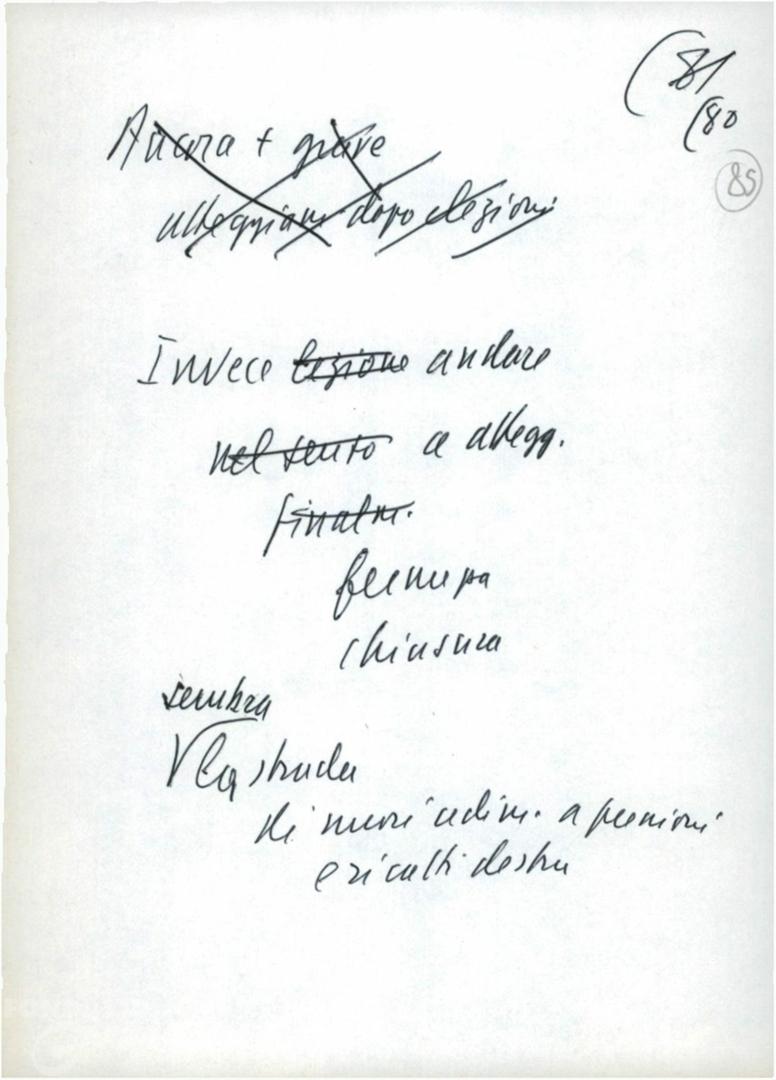 (81
(80
85
Ancora + grave
atteggiam dopo elezioni
Invece lezione andare
nel senso a attegg.
finalm.
ferma
chiusura
sembra
la strada
di nuovi cedim. a pressioni
e ricatti destra